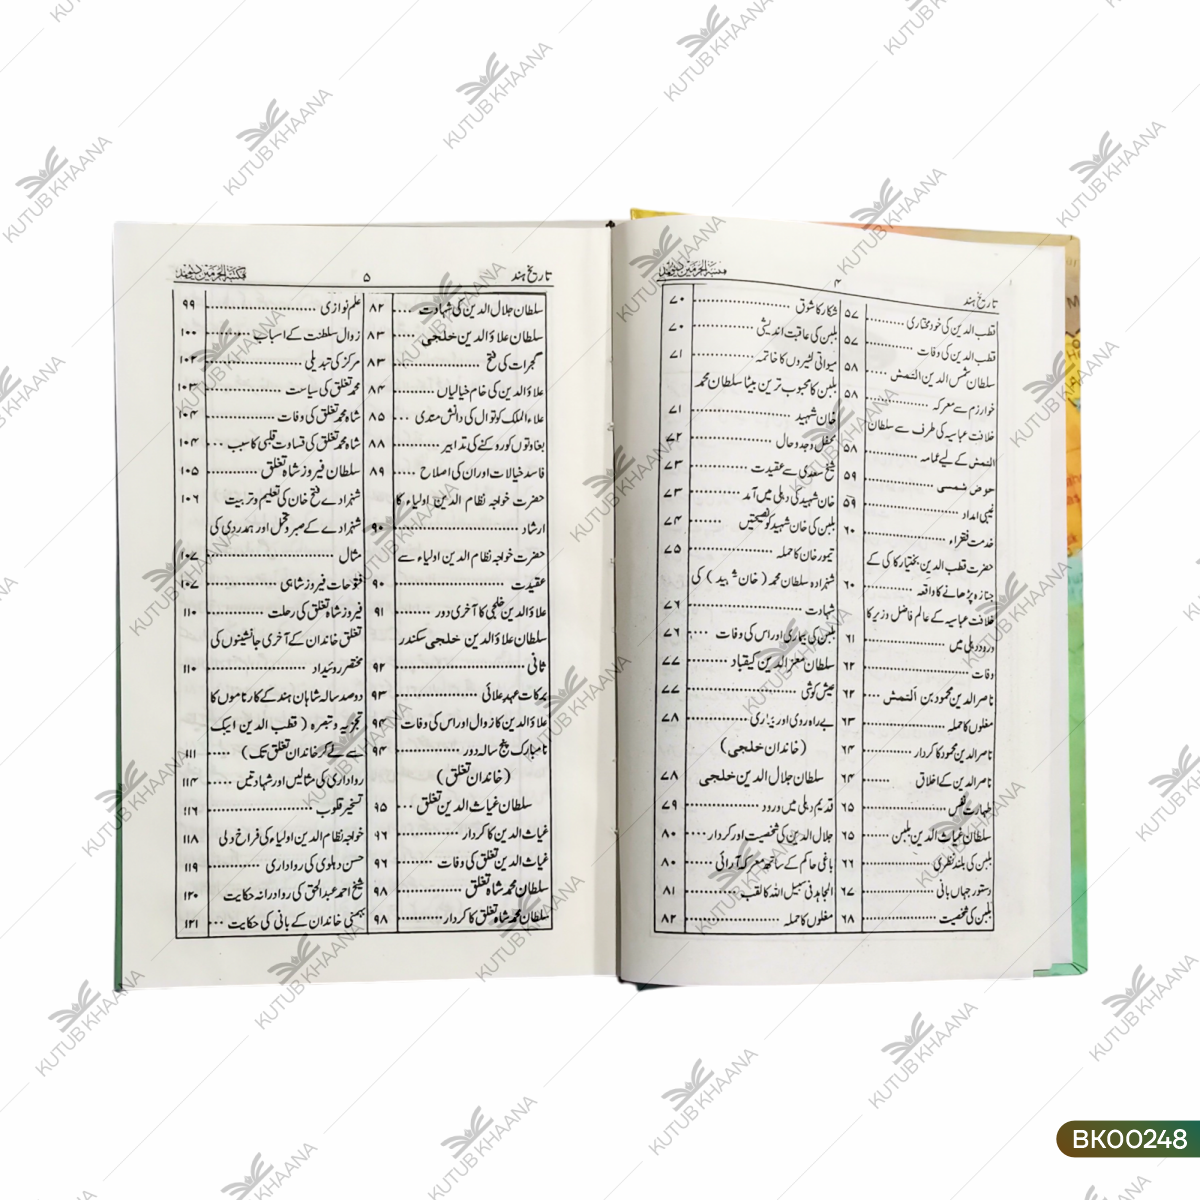 تاریخ ہند ۴ مکتبۃ الحرمین دیوبند
قطب الدین کی خود مختاری ۵۷
قطب الدین کی وفات ۵۷
سلطان شمس الدین التمش ۵۸
خوارزم سے معرکہ ۵۸
خلافت عباسیہ کی طرف سے سلطان
التمش کے لیے عمامہ ۵۸
حوض شمسی ۵۹
غیبی امداد ۵۹
خدمت فقراء ۶۰
حضرت قطب الدین بختیار کاکی کے
جنازہ پڑھانے کا واقعہ ۶۰
خلافت عباسیہ کے عالم فاضل وزیر کا
ورود دہلی میں ۶۱
وفات ۶۲
ناصر الدین محمود بن التمش ۶۲
مغلوں کا حملہ ۶۳
ناصر الدین محمود کا کردار ۶۴
ناصر الدین کے اخلاق ۶۴
طہارت نفس ۶۵
سلطان غیاث الدین بلبن ۶۵
بلبن کی بلند نظری ۶۶
دستور جہاں بانی ۶۷
بلبن کی شخصیت ۶۸
شکار کا شوق ۷۰
بلبن کی عاقبت اندیشی ۷۰
میواتی لٹیروں کا خاتمہ ۷۱
بلبن کا محبوب ترین بیٹا سلطان محمد
خان شہید ۷۱
محفل وجد و حال ۷۲
شیخ سعدی سے عقیدت ۷۳
خان شہید کی دہلی میں آمد ۷۳
بلبن کی خان شہید کو نصیحتیں ۷۴
تیمور خان کا حملہ ۷۵
شہزادہ سلطان محمد (خان شہید) کی
شہادت ۷۶
بلبن کی بیماری اور اس کی وفات ۷۶
سلطان معز الدین کیقباد ۷۷
عیش کوشی ۷۷
بے راہ روی اور بیماری ۷۸
(خاندان خلجی)
سلطان جلال الدین خلجی ۷۸
قدیم دہلی میں ورود ۷۹
جلال الدین کی شخصیت اور کردار ۸۰
باغی حاکم کے ساتھ معرکہ آرائی ۸۰
المجاہد فی سبیل اللہ کا لقب ۸۱
مغلوں کا حملہ ۸۲
تاریخ ہند ۵ مکتبۃ الحرمین دیوبند
سلطان جلال الدین کی شہادت ۸۲
سلطان علاؤ الدین خلجی ۸۳
گجرات کی فتح ۸۳
علاؤ الدین کی خام خیالیاں ۸۴
علاء الملک کوتوال کی دانش مندی ۸۵
بغاوتوں کو روکنے کی تدابیر ۸۸
فاسد خیالات اور ان کی اصلاح ۸۹
حضرت خواجہ نظام الدین اولیاء کا
ارشاد ۹۰
حضرت خواجہ نظام الدین اولیاء سے
عقیدت ۹۰
علاؤ الدین خلجی کا آخری دور ۹۱
سلطان علاؤ الدین خلجی سکندر
ثانی ۹۲
برکات عہد علائی ۹۳
علاؤ الدین کا زوال اور اس کی وفات ۹۳
نامبارک پنج سالہ دور ۹۴
(خاندان تغلق)
سلطان غیاث الدین تغلق ۹۵
غیاث الدین کا کردار ۹۶
غیاث الدین تغلق کی وفات ۹۶
سلطان محمد شاہ تغلق ۹۸
سلطان محمد شاہ تغلق کا کردار ۹۸
علم نوازی ۹۹
زوال سلطنت کے اسباب ۱۰۰
مرکز کی تبدیلی ۱۰۲
محمد تغلق کی سیاست ۱۰۳
شاہ محمد تغلق کی وفات ۱۰۴
شاہ محمد تغلق کی قساوت قلبی کا سبب ۱۰۴
سلطان فیروز شاہ تغلق ۱۰۵
شہزادے فتح خان کی تعلیم و تربیت ۱۰۶
شہزادے کے صبر و تحمل اور ہمدردی کی
مثال ۱۰۷
فتوحات فیروز شاہی ۱۰۷
فیروز شاہ تغلق کی رحلت ۱۱۰
تغلق خاندان کے آخری جانشینوں کی
مختصر روئیداد ۱۱۰
دو صد سالہ شاہان ہند کے کارناموں کا
تجزیہ و تبصرہ (قطب الدین ایبک
سے لے کر خاندان تغلق تک) ۱۱۱
رواداری کی مثالیں اور شہادتیں ۱۱۴
تسخیر قلوب ۱۱۶
خواجہ نظام الدین اولیاء کی فراخ دلی ۱۱۸
حسن دہلوی کی رواداری ۱۱۹
شیخ احمد عبدالحق کی روادارانہ حکایت ۱۲۰
بہمنی خاندان کے بانی کی حکایت ۱۲۱
KUTUB KHAANA
BK00248